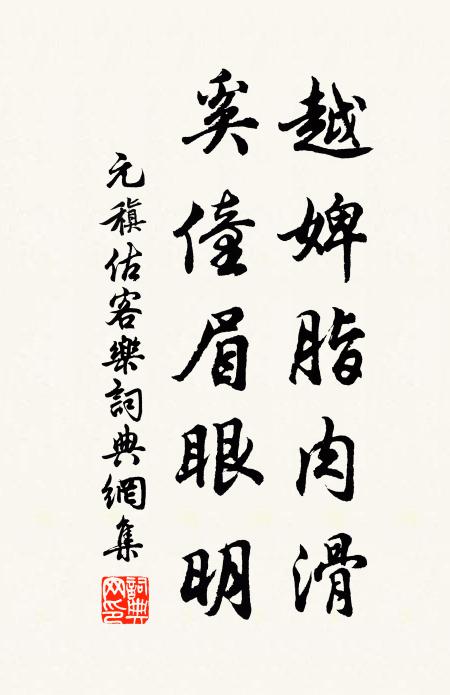 越婢脂肉滑
奚僮眉眼明
元稹估客樂詞典網集
詞典網印